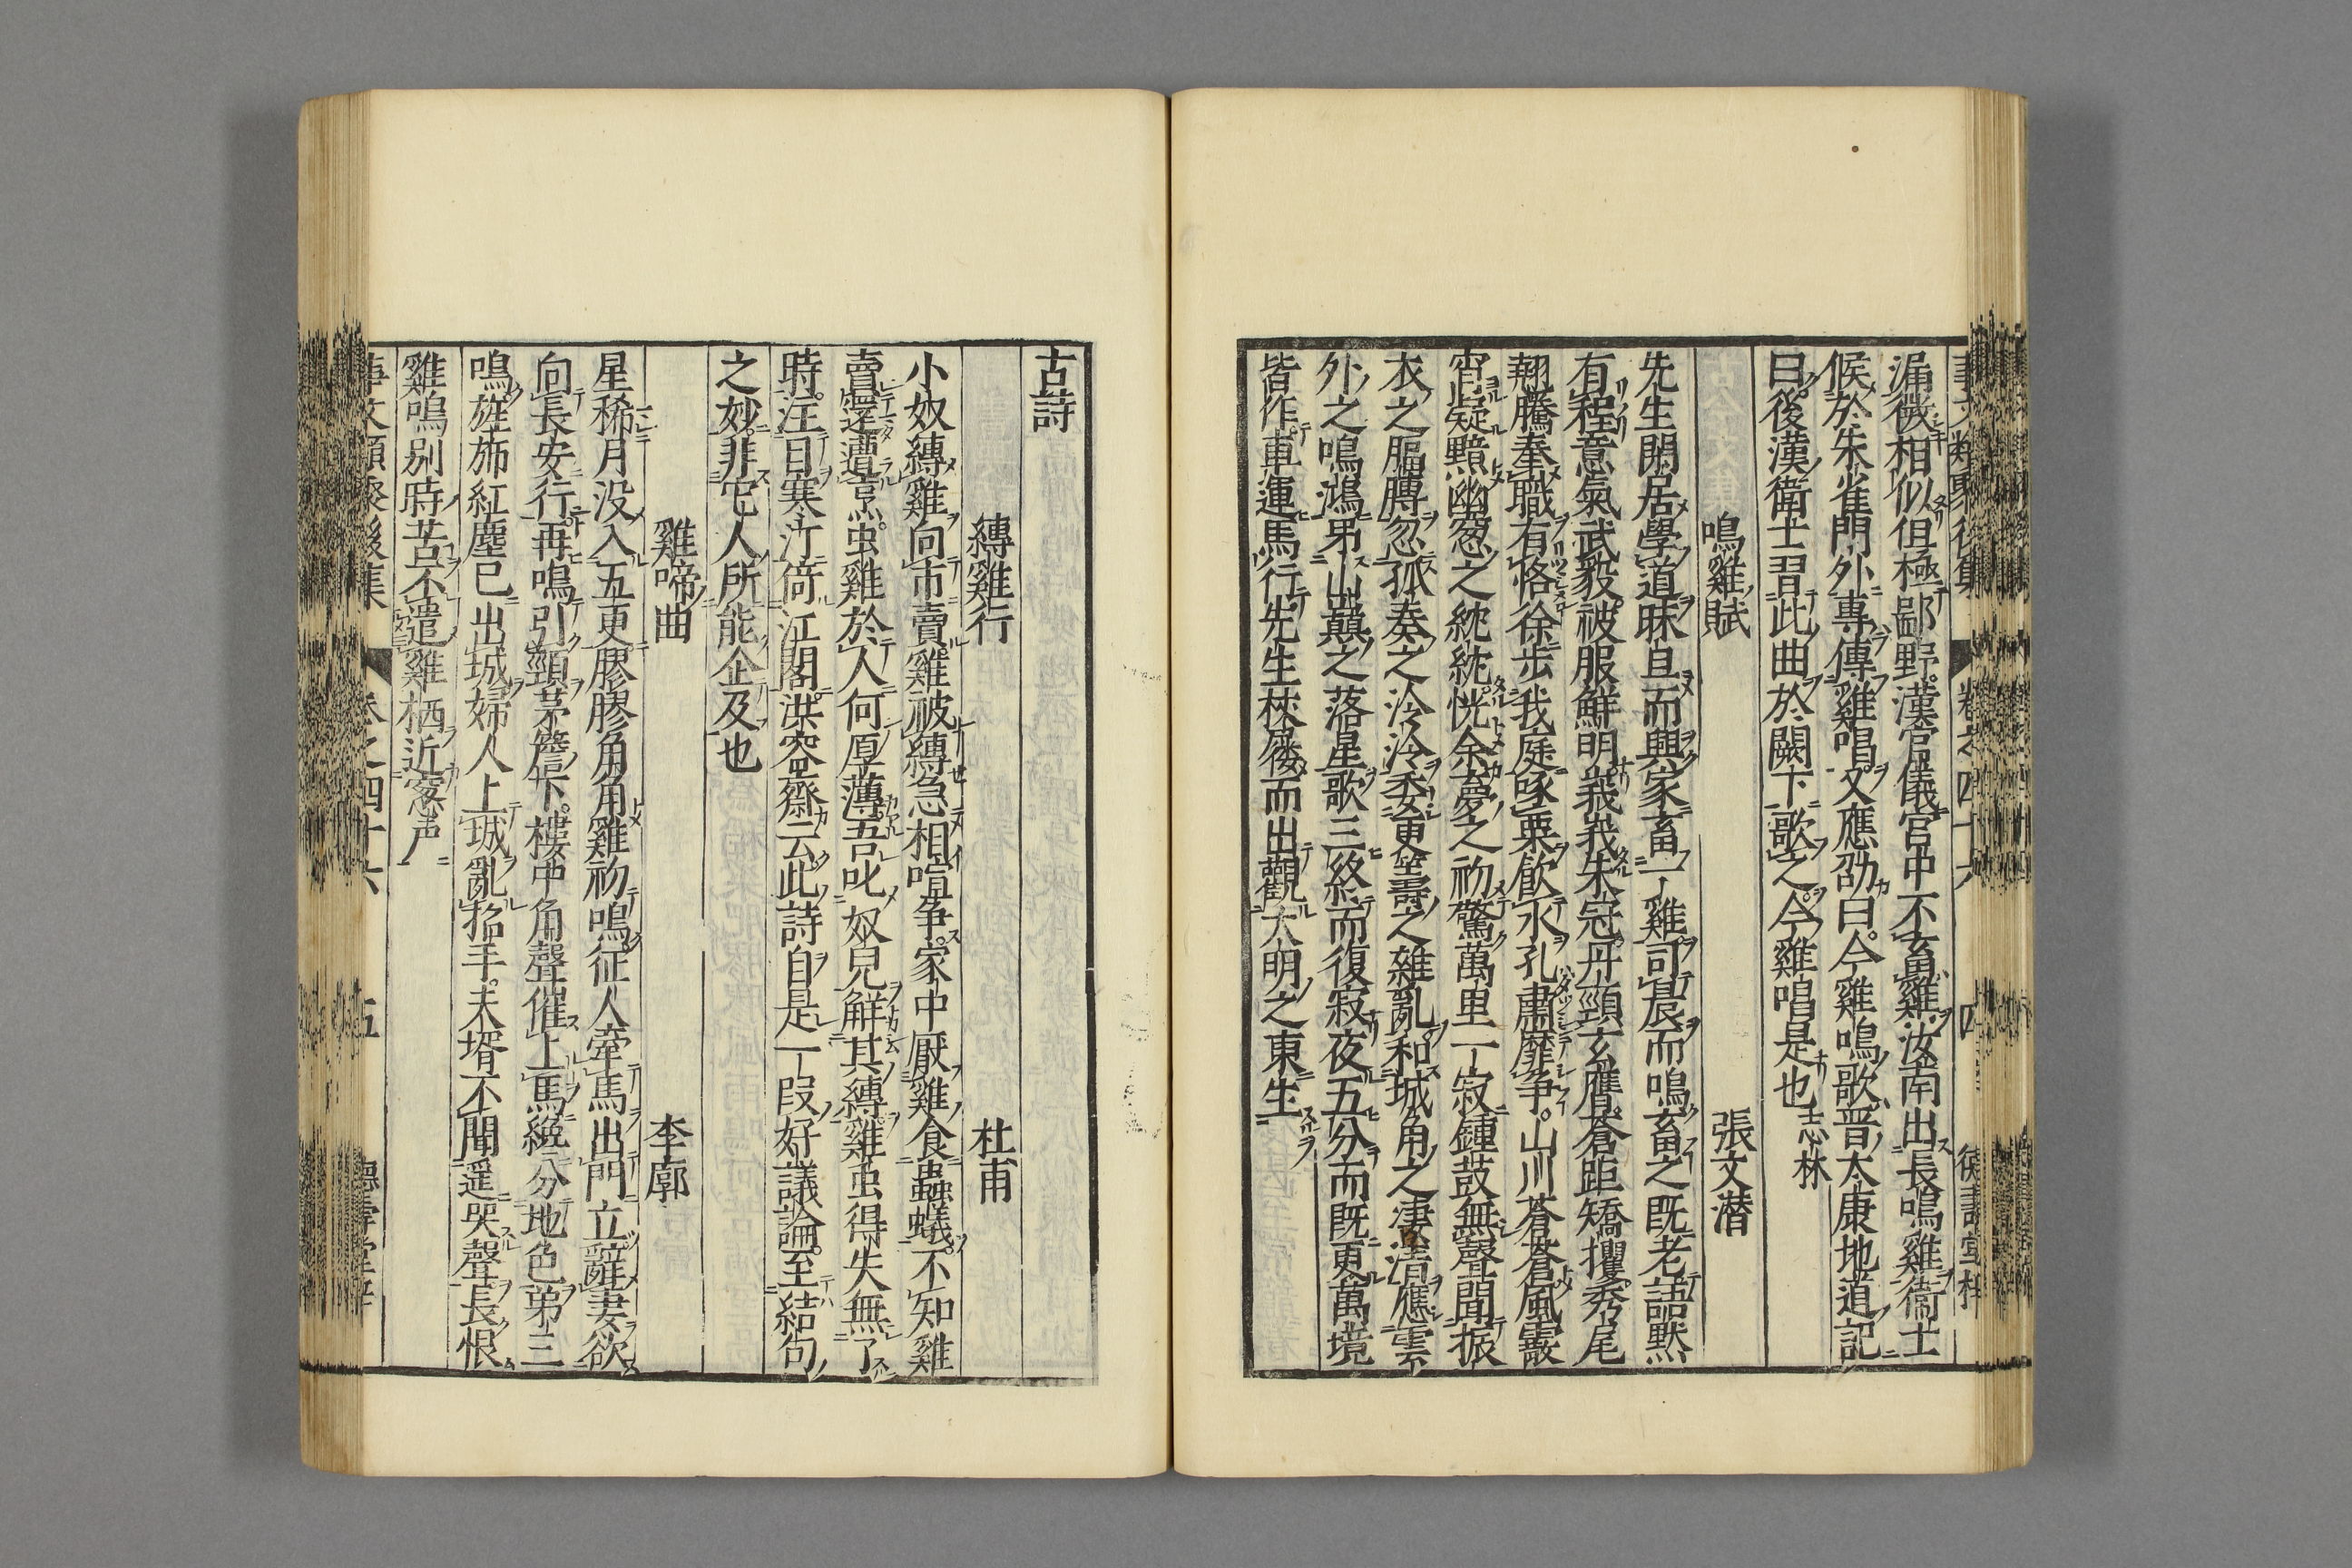 漏微相似但極鄙野漢官儀宮中不畜雞汝南出長鳴雞衞士
候於朱雀門外專傳雞唱又應劭曰今雞鳴歌晋太康地道記
曰後漢衛士習此曲於闕下歌之今雞唱是也志林
鳴雞賦 張文潜
先生閑居學道昧旦而興家畜一雞司晨而鳴畜之既老語默
有程意氣武毅被服鮮明峩峩朱冠丹頸玄膺蒼距矯攫秀尾
翹騰奉職有恪徐步我庭啄粟飲水孔肅靡争山川蒼蒼風霰
宵凝黯幽窓之紞紞恍余夢之初驚萬里一寂鍾鼓無聲聞振
衣之膈膊忽孤奏之泠泠委更籌之雜亂和城角之凄清應雲
外之鳴鴻弔山巔之落星歌三終而復寂夜五分而既更萬境
皆作車運馬行先生䇿屨而出觀大明之東生
古詩
縳雞行 杜甫
小奴縳雞向市賣雞被縳急相喧争家中厭雞食蟲蟻不知雞
賣還遭烹虫雞於人何厚薄吾叱奴兒解其縳雞虫得失無了
時注目寒汀倚江閣洪容齋云此詩自是一段好議論至結句
之妙非它人所能企及也
雞啼曲 李廓
星稀月没入五更膠膠角角雞初鳴征人牽馬出門立辭妻欲
向長安行再鳴引頸茅簷下樓中角聲催上馬纔分地色弟三
鳴旌旆紅塵已出城婦人上城亂招手夫壻不聞遥哭聲長恨
雞鳴别時苦不遣雞栖近窓声
事文類聚後集 卷之四十六 五